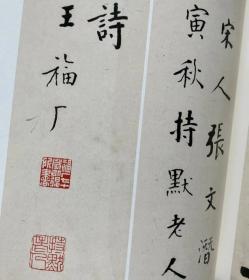 宋人張文潛
寅秋持默老人
詩
王福厂